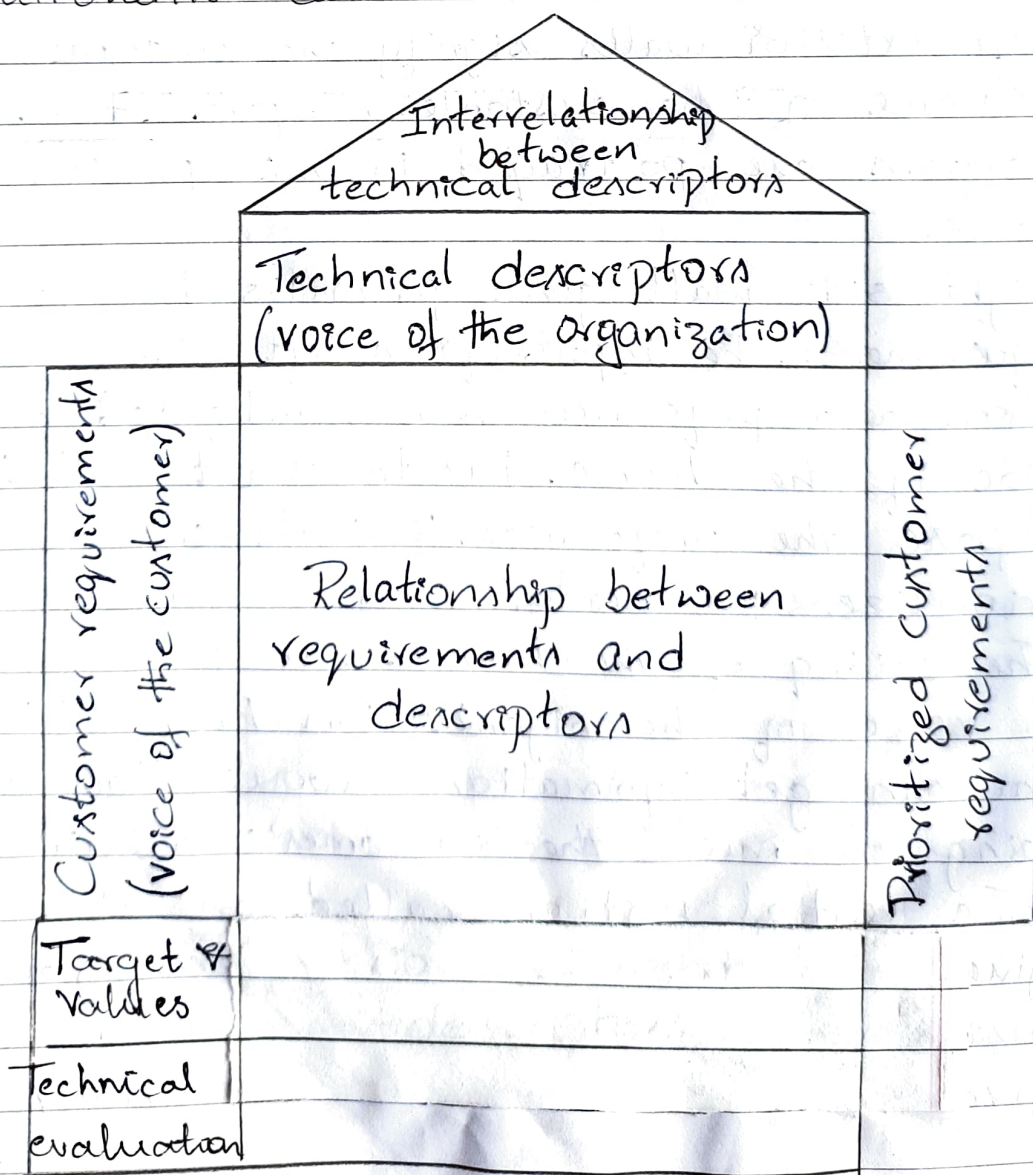 Interrelationship
between
technical descriptors
Technical descriptors
(voice of the organization)
Customer requirements
(voice of the customer)
Relationship between
requirements and
descriptors
Prioritized customer
requirements
Target
Values
Technical
evaluation